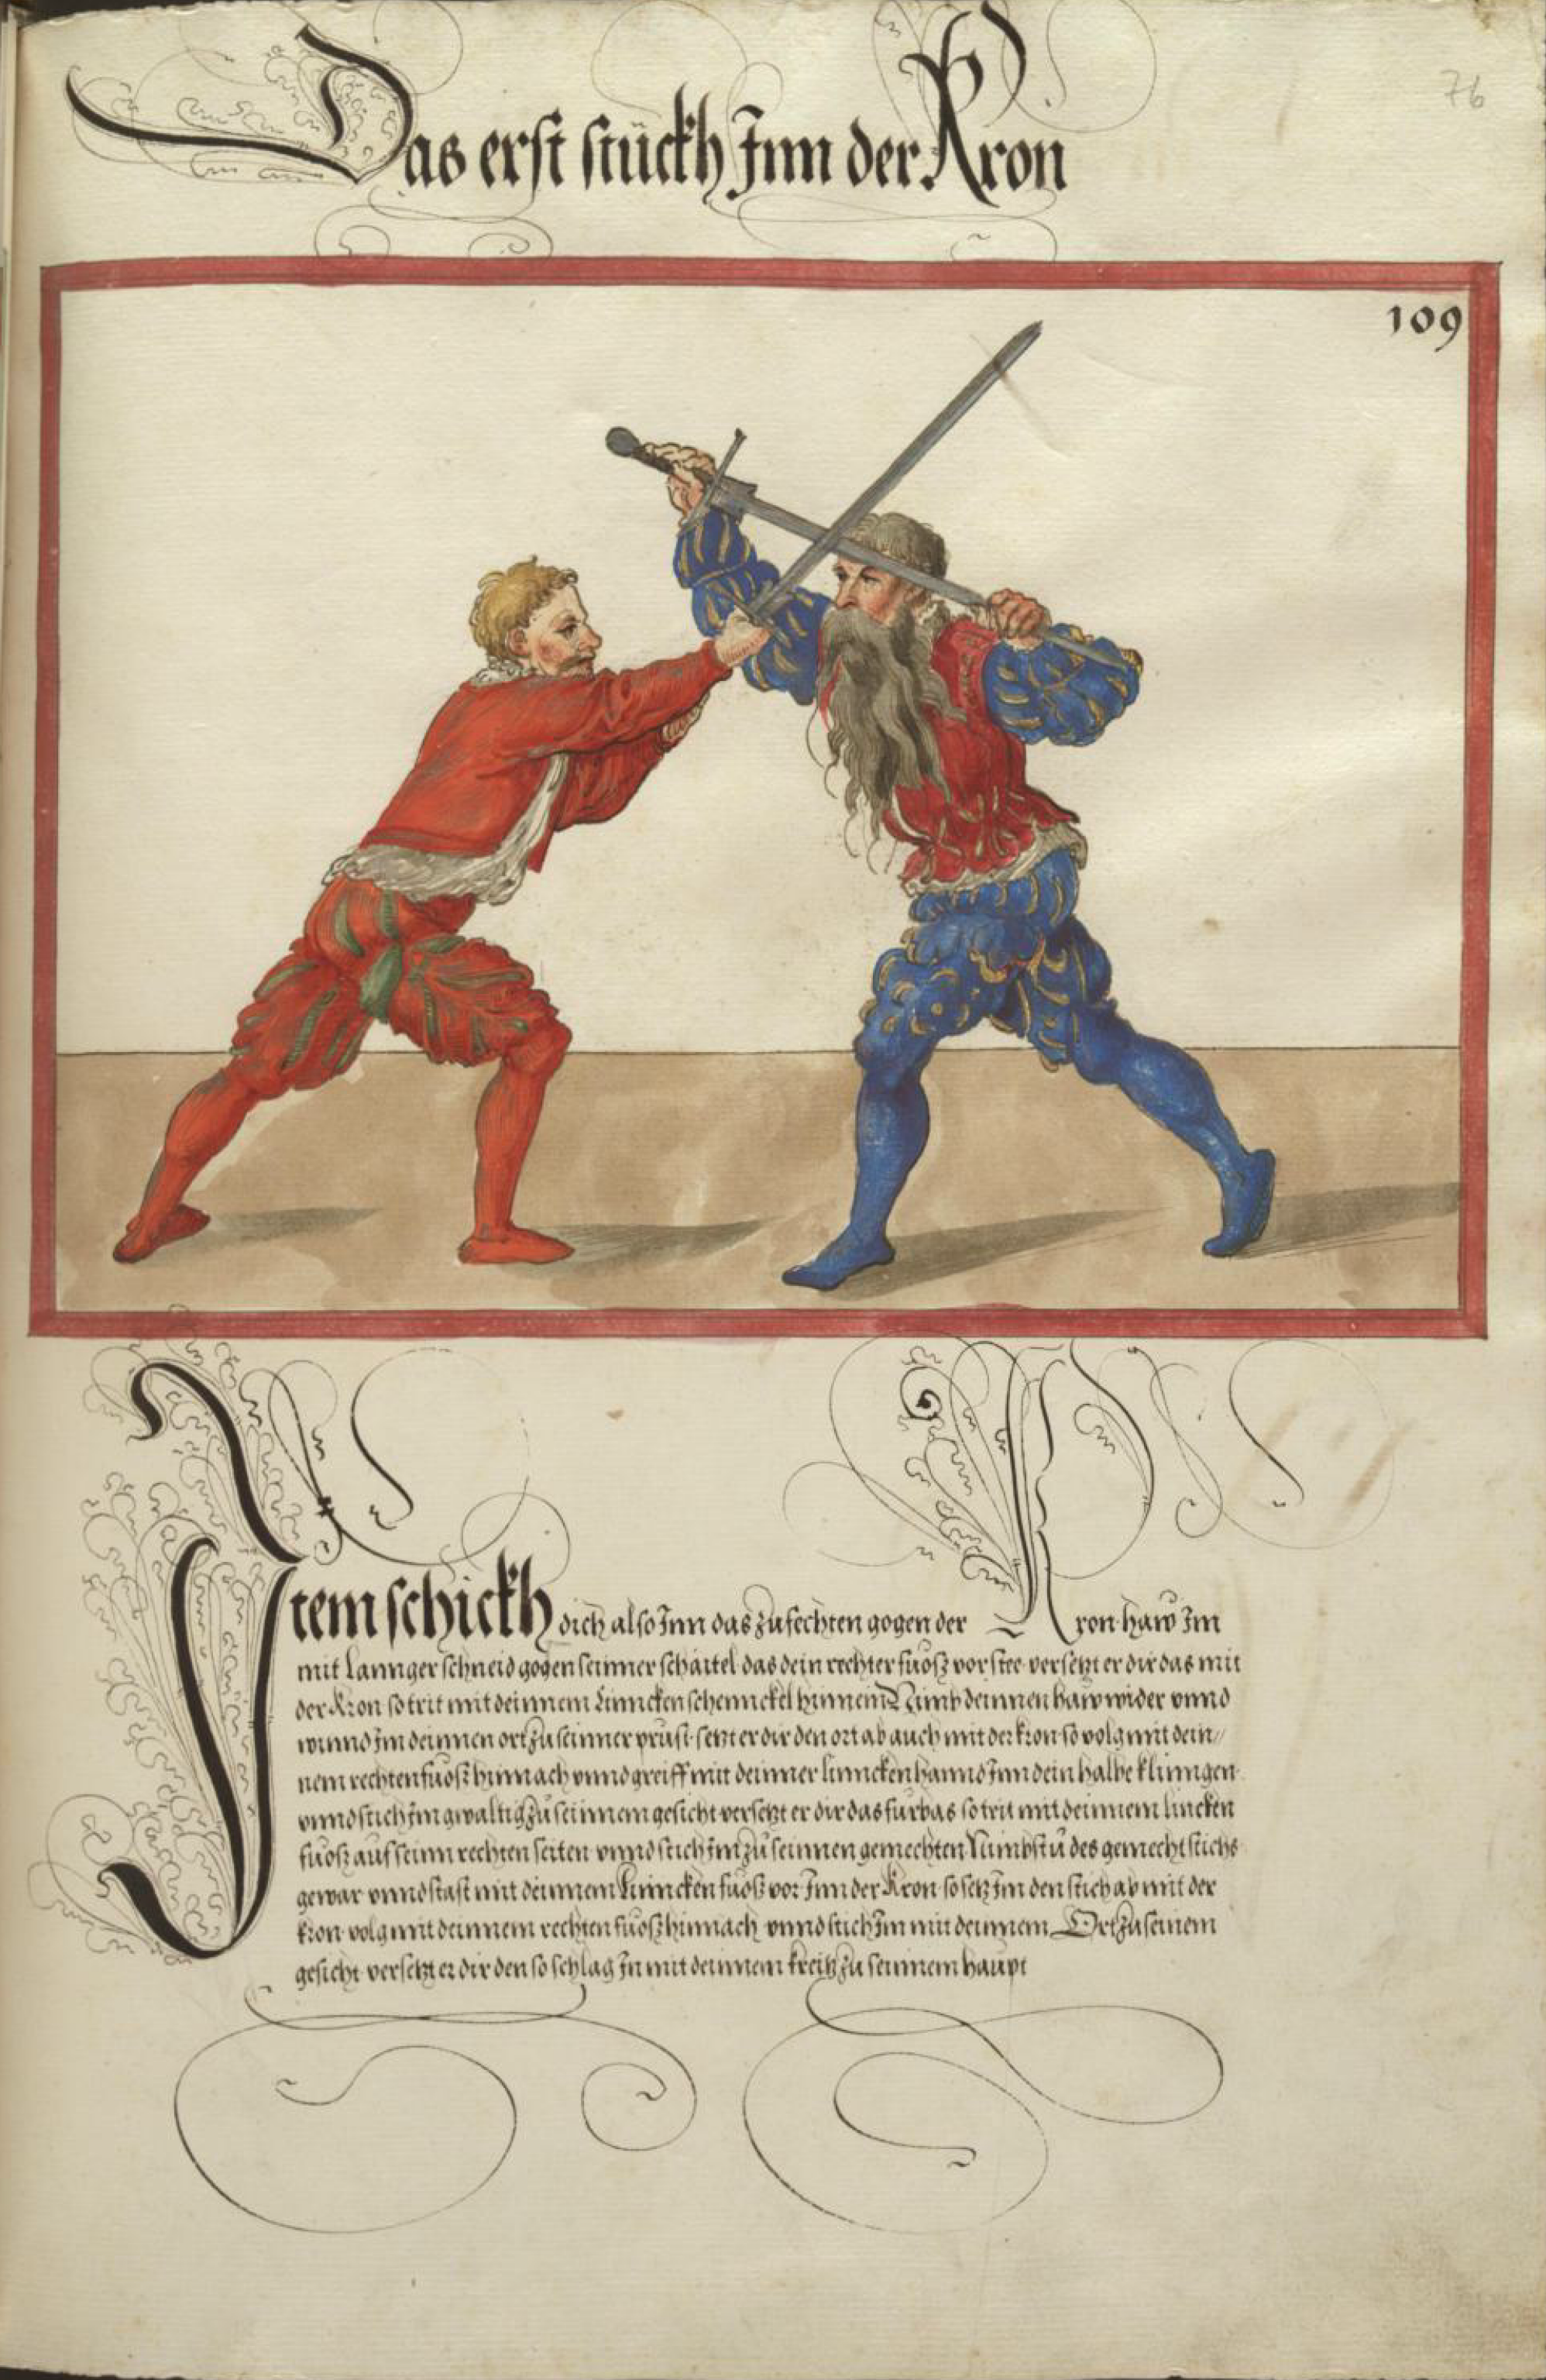 76
Das erst stückh Inn der Kron
109
Item schickh dich also Inn das zufechten gogen der Kron haw Im
mit lannger schneid gogen seinner schaittel das dein rechter fuosz vor stee versetzt er dir das mit
der Kron so trit mit deinnem Linncken schennckel hinnein Nimb deinnen haw wider vnnd
wunnd Im deinnen ort zu seinner prust setzt er dir den ort ab auch mit der kron so volg mit dein//
nem rechten fuosz hinnach vnnd greiff mit deinner linncken hannd Inn dein halbe klinngen
vnnd stich Im gwaltig zu seinnem gesicht versetzt er dir das furbas so trit mit deinnem lincken
fuosz auf seinn rechten seiten vnnd stich Im zu seinnen gemechten Nimbstu des gemecht stichs
gewar vnnd stast mit deinnem Linncken fuosz vor Inn der Kron so setz Im den stich ab mit der
kron volg mit deinnem rechten fuosz hinnach vnnd stich Im mit deinnem Ort zu seinem
gesicht versetzt er dir den so schlag In mit deinnem kreitz zu seinnem haupt